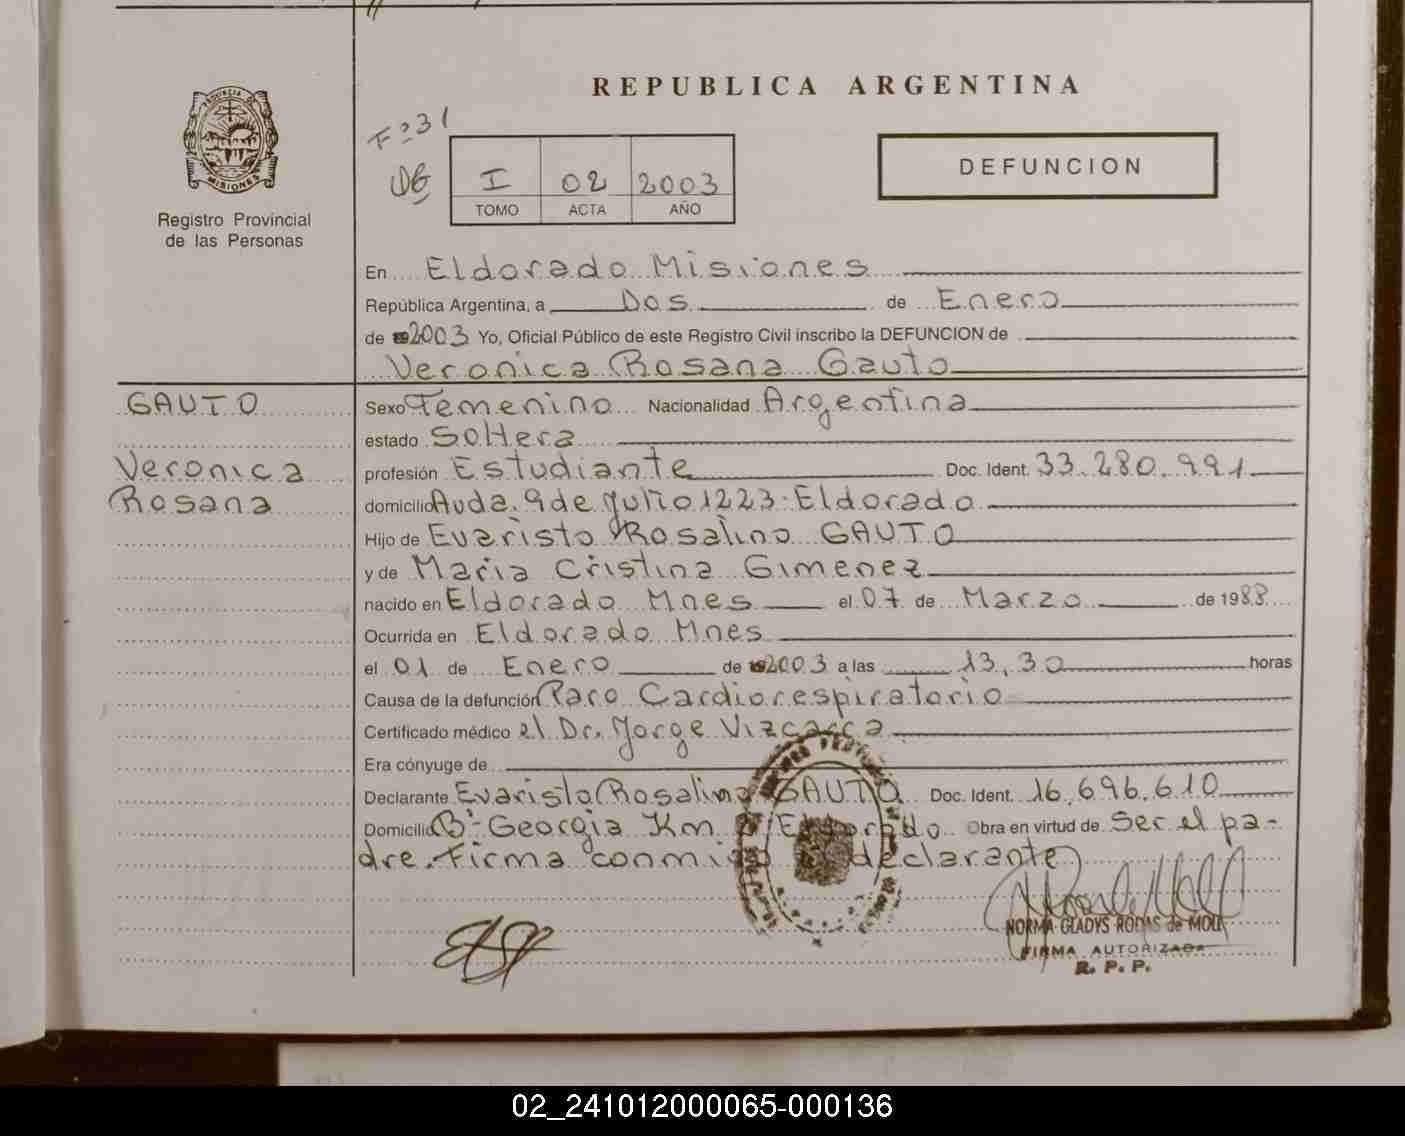 REPUBLICA ARGENTINA
PROVINCIA DE
MISIONES
Registro Provincial
de las Personas
Fº31
I 02 2003
TOMO ACTA AÑO
DEFUNCION
En Eldorado Misiones
República Argentina, a Dos de Enero
de 2003 Yo, Oficial Público de este Registro Civil inscribo la DEFUNCION de
Veronica Rosana Gauto
GAUTO
Veronica
Rosana
Sexo Femenino Nacionalidad Argentina
estado Soltera
profesión Estudiante Doc. Ident. 33.280.991
domicilio Avda. 9 de Julio 1223. Eldorado
Hijo de Evaristo Rosalino GAUTO
y de Maria Cristina Gimenez
nacido en Eldorado Mnes el 07 de Marzo de 1988
Ocurrida en Eldorado Mnes
el 01 de Enero de 2003 a las 13,30 horas
Causa de la defunción Paro Cardiorespiratorio
Certificado médico el Dr. Jorge Vizcarra
Era cónyuge de
Declarante Evaristo Rosalino GAUTO Doc. Ident. 16.696.610
Domicilio Bº Georgia Km Eldorado Obra en virtud de Ser el pa-
dre. Firma conmigo el declarante
NORMA GLADYS RODAS de MOLL
FIRMA AUTORIZADA
R. P. P.
02_241012000065-000136